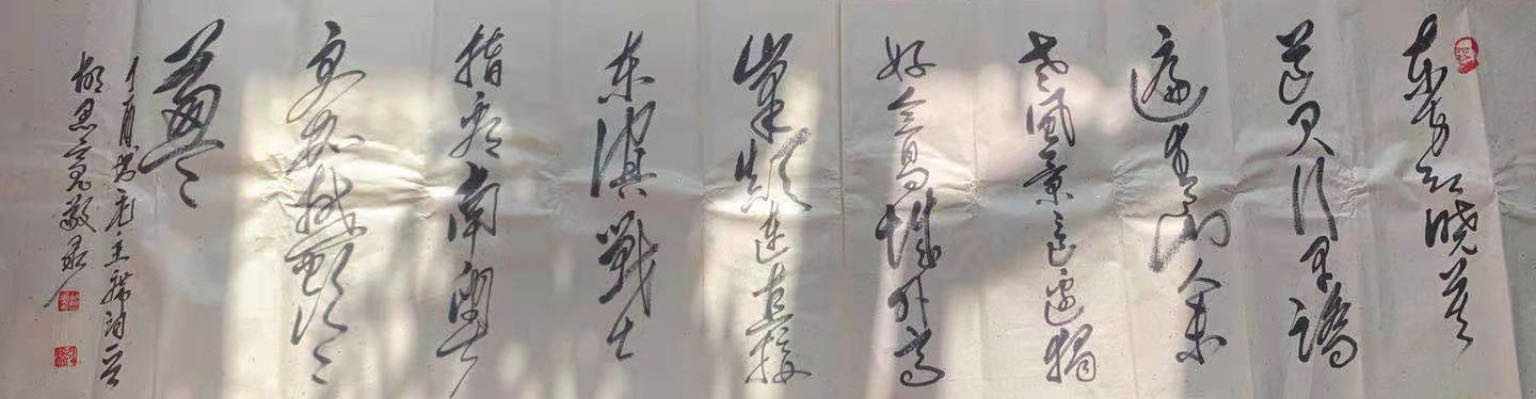 东方欲晓莫
道君行早踏
遍青山人未
老風景这边独
好会昌城外高
峯颠连直接
东溟戰士
指看南粤
更加郁々
葱々
丁酉书毛主席词一首
思亮敬录